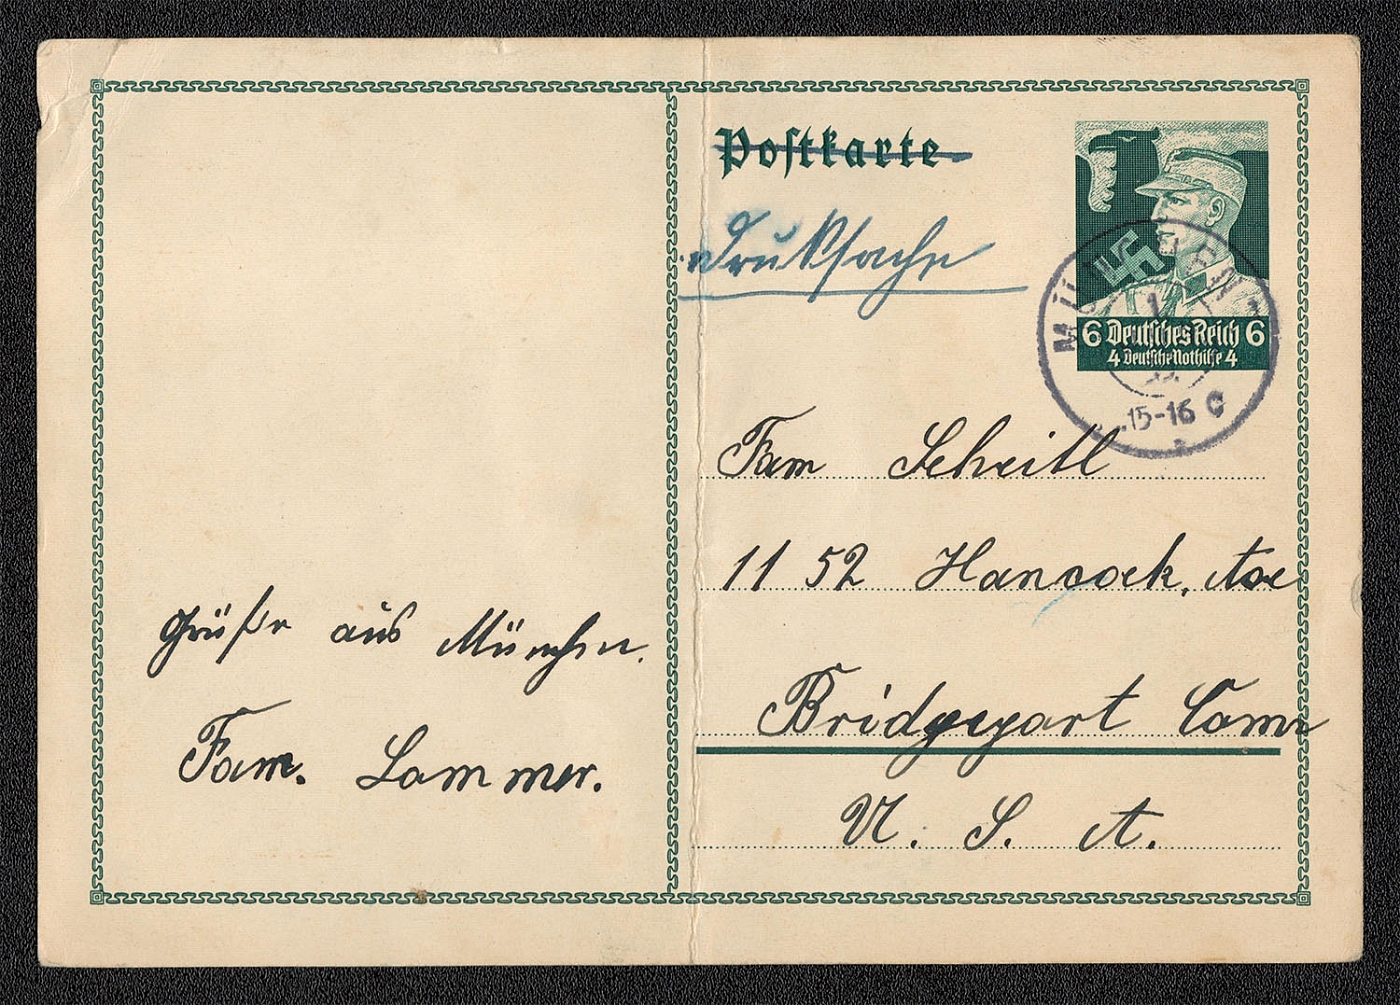 Postkarte
Drucksache
6 Deutsches Reich 6
4 Deutsche Nothilfe 4
MÜNCHEN
1
15-16 C
Fam Scheitl
1152 Hancock, Ave
Bridgeport Conn
U. S. A.
Grüße aus München.
Fam. Lammer.